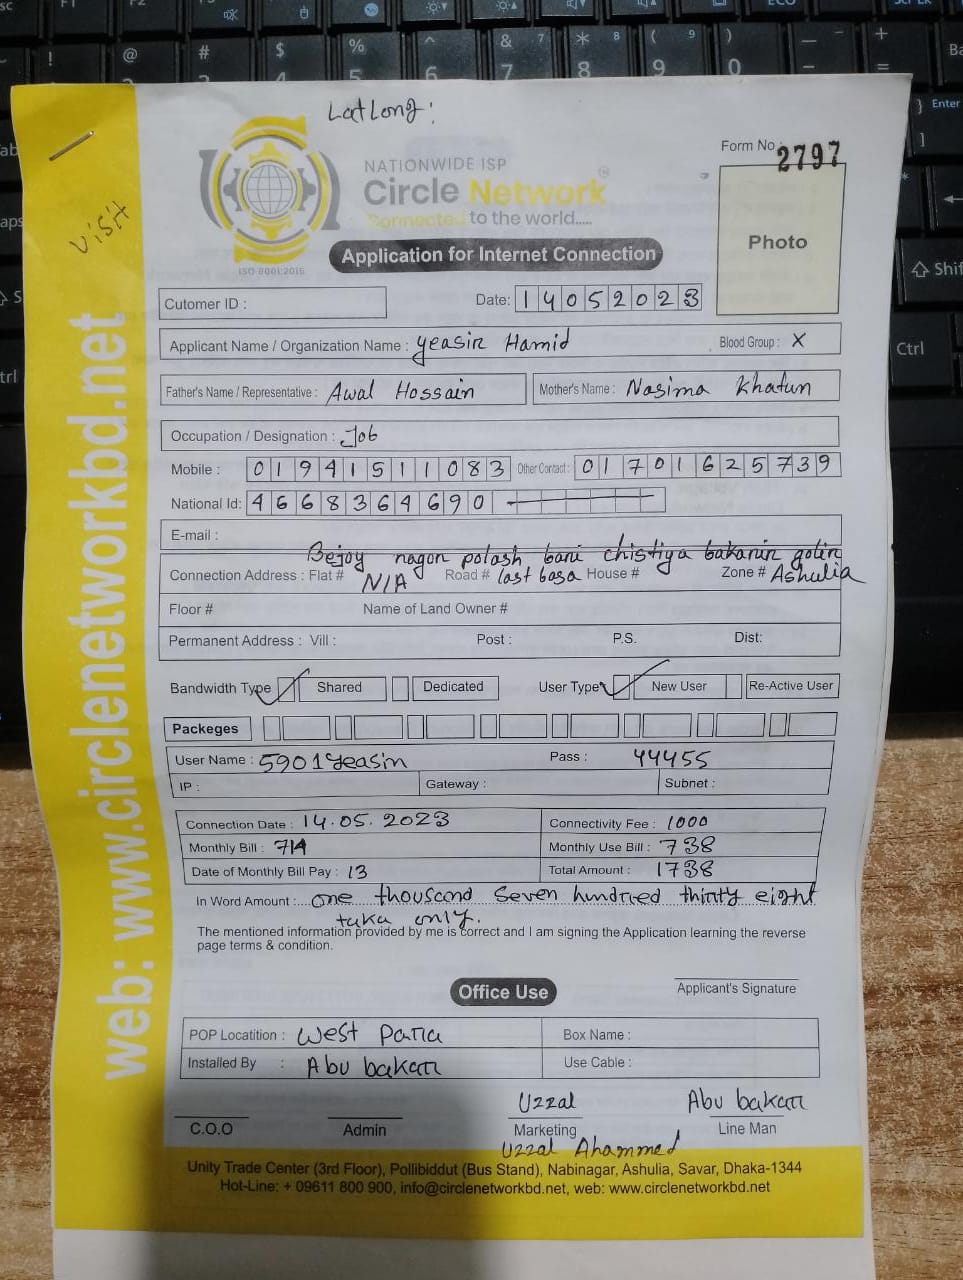 LatLong:
Form No. 2797
NATIONWIDE ISP
Circle Network
Connected to the world.....
ISO 9001:2015
Photo
visit
Application for Internet Connection
Cutomer ID :
Date: 14052023
Applicant Name / Organization Name : Yeasir Hamid Blood Group : X
Father's Name / Representative : Awal Hossain Mother's Name : Nasima Khatun
Occupation / Designation : Job
Mobile : 01941511083 Other Contact : 01701625739
National Id: 4668364690
E-mail :
Bejoy nagor polash bari chistiya bakarir golir
Connection Address : Flat # N/A Road # last basa House # Zone # Ashulia
Floor # Name of Land Owner #
Permanent Address : Vill : Post : P.S. Dist:
Bandwidth Type Shared Dedicated User Type New User Re-Active User
Packeges
User Name : 5901Yeasin Pass : 44455
IP : Gateway : Subnet :
Connection Date : 14.05.2023 Connectivity Fee : 1000
Monthly Bill : 714 Monthly Use Bill : 738
Date of Monthly Bill Pay : 13 Total Amount : 1738
In Word Amount :.... one thousand seven hundred thirty eight
taka only.
The mentioned information provided by me is correct and I am signing the Application learning the reverse
page terms & condition.
Applicant's Signature
Office Use
POP Locatition : West Para Box Name :
Installed By : Abu bakar Use Cable :
Uzzal Abu bakar
C.O.O Admin Marketing Line Man
Uzzal Ahammed
Unity Trade Center (3rd Floor), Pollibiddut (Bus Stand), Nabinagar, Ashulia, Savar, Dhaka-1344
Hot-Line: + 09611 800 900, info@circlenetworkbd.net, web: www.circlenetworkbd.net
web: www.circlenetworkbd.net